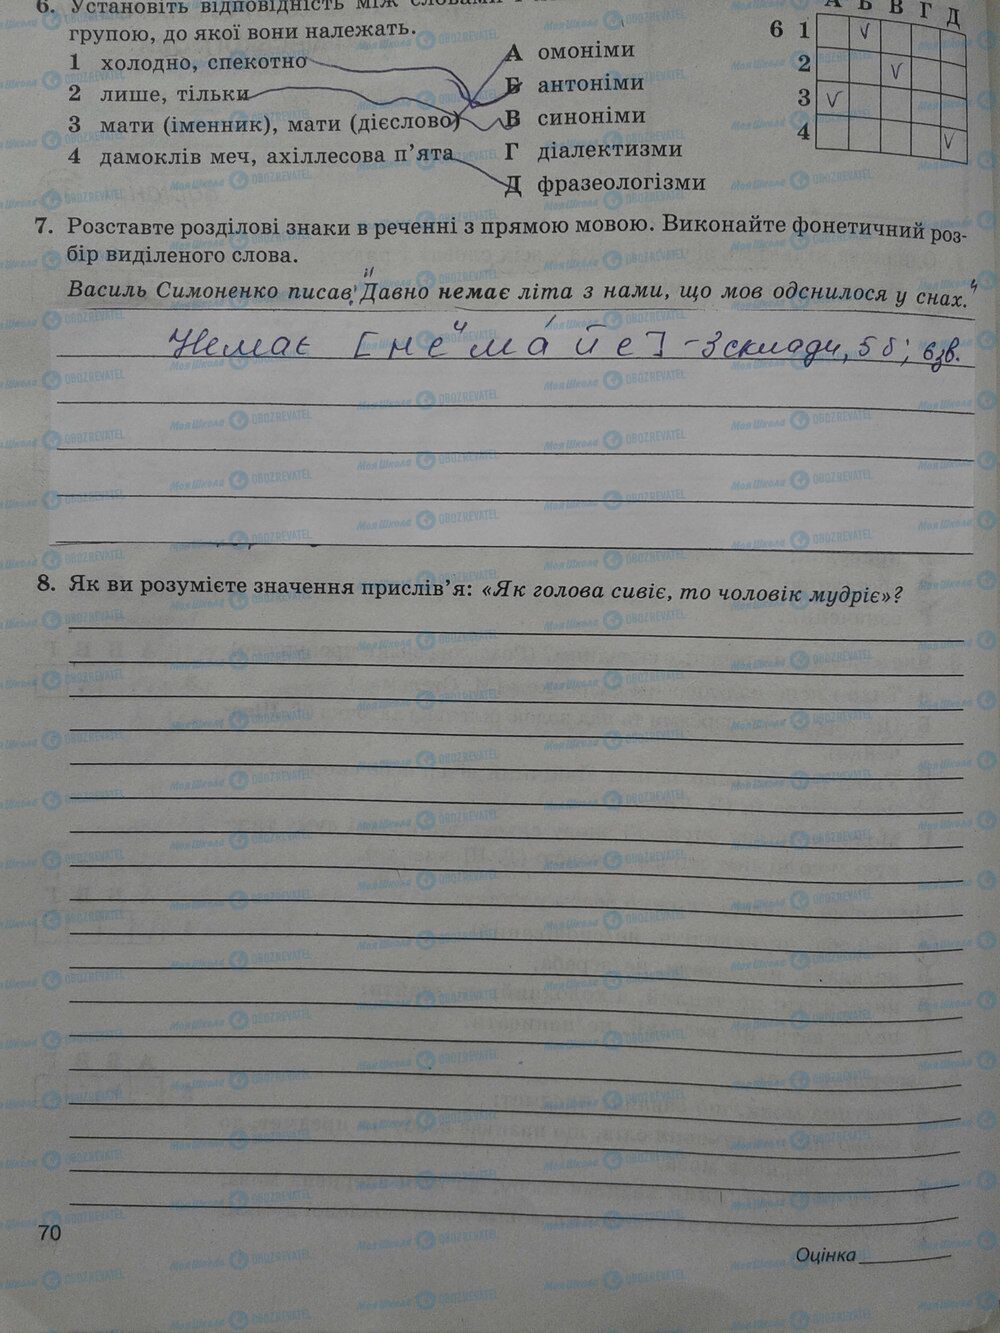 6. Установіть відповідність між словами і
групою, до якої вони належать.
1 холодно, спекотно
2 лише, тільки
3 мати (іменник), мати (дієслово)
4 дамоклів меч, ахіллесова п'ята
А омоніми
Б антоніми
В синоніми
Г діалектизми
Д фразеологізми
А Б В Г Д
6 1 V
2 V
3 V
4 V
7. Розставте розділові знаки в реченні з прямою мовою. Виконайте фонетичний роз-
бір виділеного слова.
Василь Симоненко писав: "Давно немає літа з нами, що мов одснилося у снах."
Немає [неимайе] – 3 склади, 5 б; 6 зв.
8. Як ви розумієте значення прислів'я: «Як голова сивіє, то чоловік мудріє»?
70
Оцінка
МояШкола OBOZREVATEL